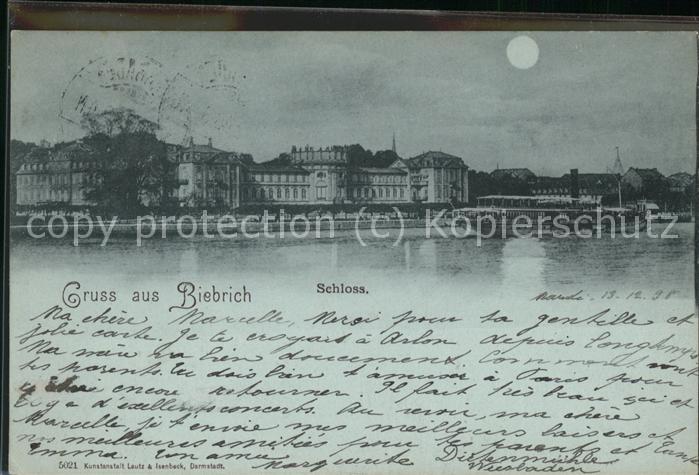 copyright protection (c) Kopierschutz
Gruss aus Biebrich
Schloss.
mardi. 13.12.98
Ma chère Marcelle, Merci pour ta gentille et
jolie carte. Je te croyais à Arlon depuis longtemps
Ma mère va bien doucement. Comment vont
tes parents. Tu dois bien t'amuser à Paris pour
encore retourner. Il fait très beau ici et
il y a d'excellents concerts. Au revoir, ma chère
Marcelle, je t'envoie mes meilleurs baisers et
mes meilleures amitiés pour tes parents et
Emma. Ton amie Marguerite
Wiesbaden
5021 Kunstanstalt Lautz & Isenbeck, Darmstadt.